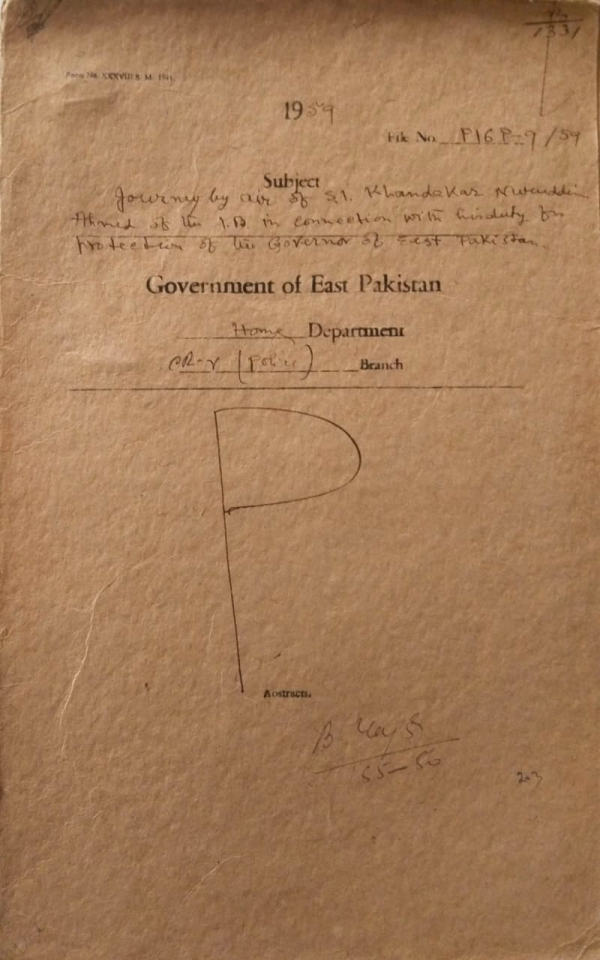 1331
Form No. XXXVIII
1959
File No. P16P-9/59
Subject
Journey by air of S.I. Khandakar Nuruddin
Ahmed of the I.B. in connection with his duty for
protection of the Governor of East Pakistan.
Government of East Pakistan
Home Department
(Police) Branch
P
Abstracts.
B